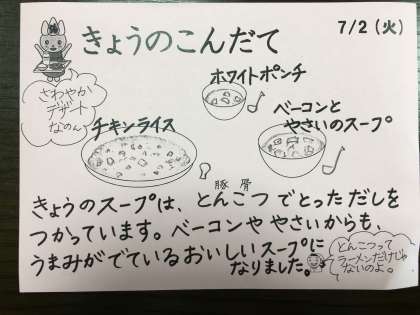 きょうのこんだて
7/2（火）
さわやか
デザート
なのん♪
ホワイトポンチ
チキンライス
ベーコンと
やさいのスープ
豚 骨
きょうのスープは、とんこつ でとっただしを
つかっています。ベーコンや やさいからも、
うまみがでているおいしいスープに
なりました。
とんこつって
ラーメンだけじゃ
ないのよ。